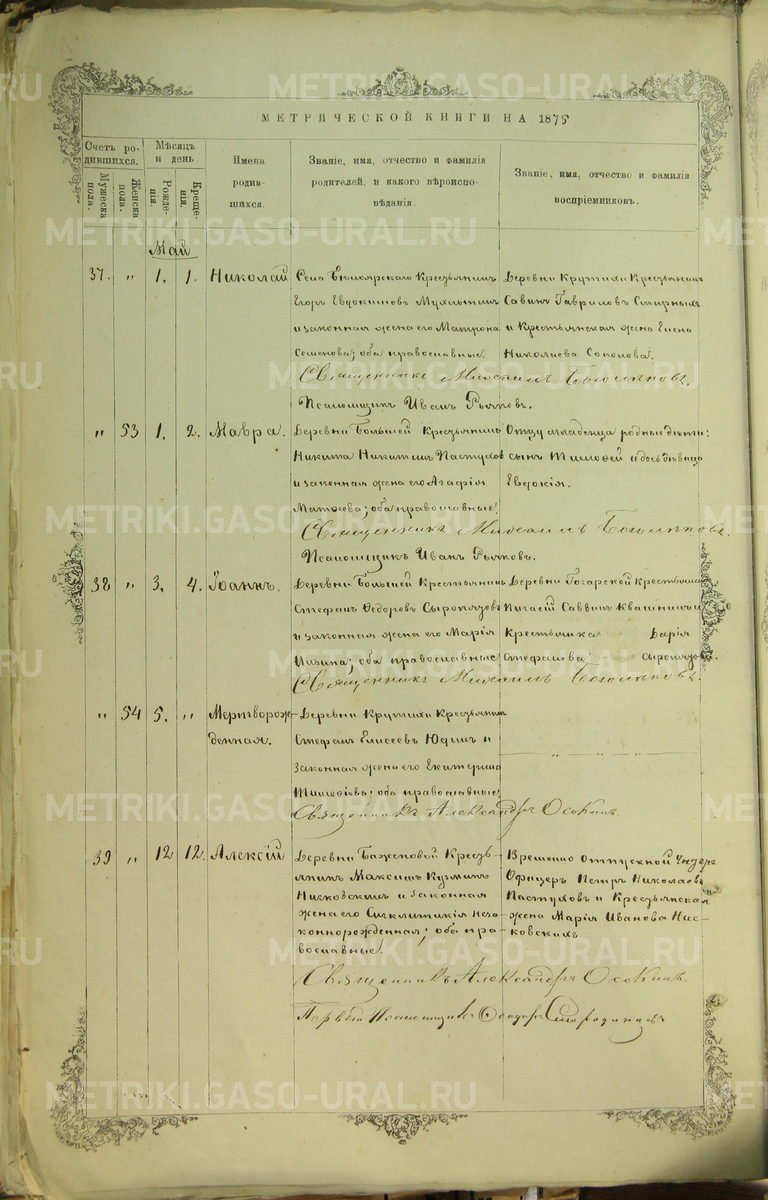 METRIKI.GASO-URAL.RU
МЕТРИЧЕСКОЙ КНИГИ НА 1875
Счетъ ро-
дившихся.
Мѣсяцъ
и день
Мужеска
пола.
Женска
пола.
Рожде-
нія.
Креще-
нія.
Имена
родив-
шихся.
Званіе, имя, отчество и фамилія
родителей, и какого вѣроиспо-
вѣданія.
Званіе, имя, отчество и фамилія
воспріемниковъ.
Май
37. " 1. 1. Николай
Села Крестьянинъ
Егоръ Евдокимовъ
и законная жена его Матрона
Семенова; оба православные.
Деревни Крутихи Крестьянинъ
Савинъ Гавриловъ Смирныхъ
и Крестьянская жена Елена
Николаева Соколова.
Священникъ Михаилъ Боголѣповъ.
Псаломщикъ Иванъ
" 53 1. 2. Мавра.
Деревни Большей Крестьянинъ
Никита Никитинъ Пастухов
и законная жена его Агафія
Матѳеева; оба православные.
Отцу младенца родные дѣти:
сынъ Тимоѳей и дочь дѣвица
Евдокія.
Священникъ Михаилъ Боголѣповъ.
Псаломщикъ Иванъ
38 " 3. 4. Іоаннъ.
Деревни Большей Крестьянинъ
Стефанъ Ѳедоровъ Сыропятовъ
и законная жена его Марія
оба православные
Деревни крестьянинъ
Саввинъ Квашнинъ и
Крестьянка Дарія
Стефанова Сыропятов.
Священникъ Михаилъ Боголѣповъ.
" 54 5. " Мертворож-
денная.
Деревни Крутихи Крестьянинъ
Стефанъ Елисеевъ Юдинъ и
Законная жена его Екатерина
Тимоѳіева; оба православные
Священникъ Александръ Осокинъ.
39 " 12 12. Алексій
Деревни Баженовой Кресть-
янинъ Максимъ Кузминъ
Нисковскихъ и законная
жена его Синклитикія неза-
коннорожденная; оба пра-
вославные.
Временно Отпускной Унтеръ
Офицеръ Петръ Николаевъ
Пастуховъ и Крестьянская
жена Марія Иванова Нис-
ковскихъ
Священникъ Александръ Осокинъ.
Первый Псаломщикъ Ѳеодоръ Смородинцевъ